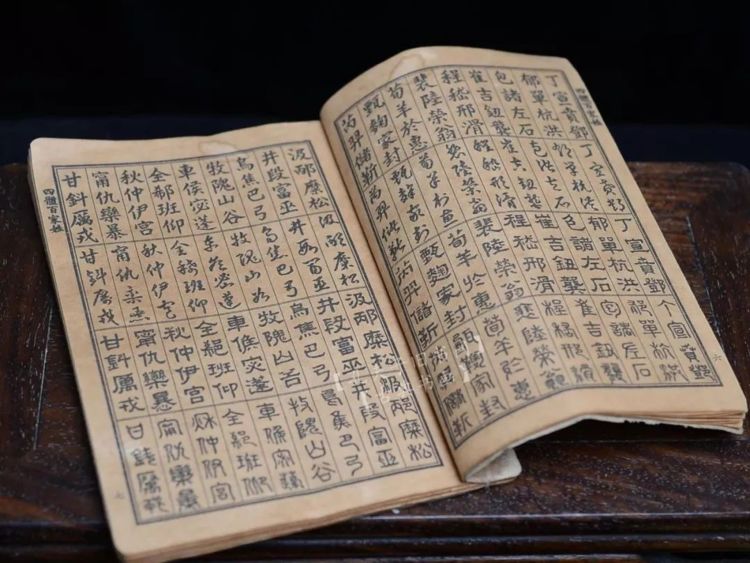 四體百家姓
六
丁宣賁鄧丁宣賁鄧丁宣賁鄧丁宣賁鄧
郁單杭洪郁單杭洪郁單杭洪郁單杭洪
包諸左石包諸左石包諸左石包諸左石
崔吉鈕龔崔吉鈕龔崔吉鈕龔崔吉鈕龔
程嵇邢滑程嵇邢滑程嵇邢滑程嵇邢滑
裴陸榮翁裴陸榮翁裴陸榮翁裴陸榮翁
荀羊於惠荀羊於惠荀羊於惠荀羊於惠
甄麴家封甄麴家封甄麴家封甄麴家封
芮羿儲靳芮羿儲靳芮羿儲靳芮羿儲靳
汲邴糜松汲邴糜松汲邴糜松汲邴糜松
井段富巫井段富巫井段富巫井段富巫
烏焦巴弓烏焦巴弓烏焦巴弓烏焦巴弓
牧隗山谷牧隗山谷牧隗山谷牧隗山谷
車侯宓蓬車侯宓蓬車侯宓蓬車侯宓蓬
全郗班仰全郗班仰全郗班仰全郗班仰
秋仲伊宮秋仲伊宮秋仲伊宮秋仲伊宮
甯仇欒暴甯仇欒暴甯仇欒暴甯仇欒暴
甘鈄厲戎甘鈄厲戎甘鈄厲戎甘鈄厲戎
四體百家姓
七